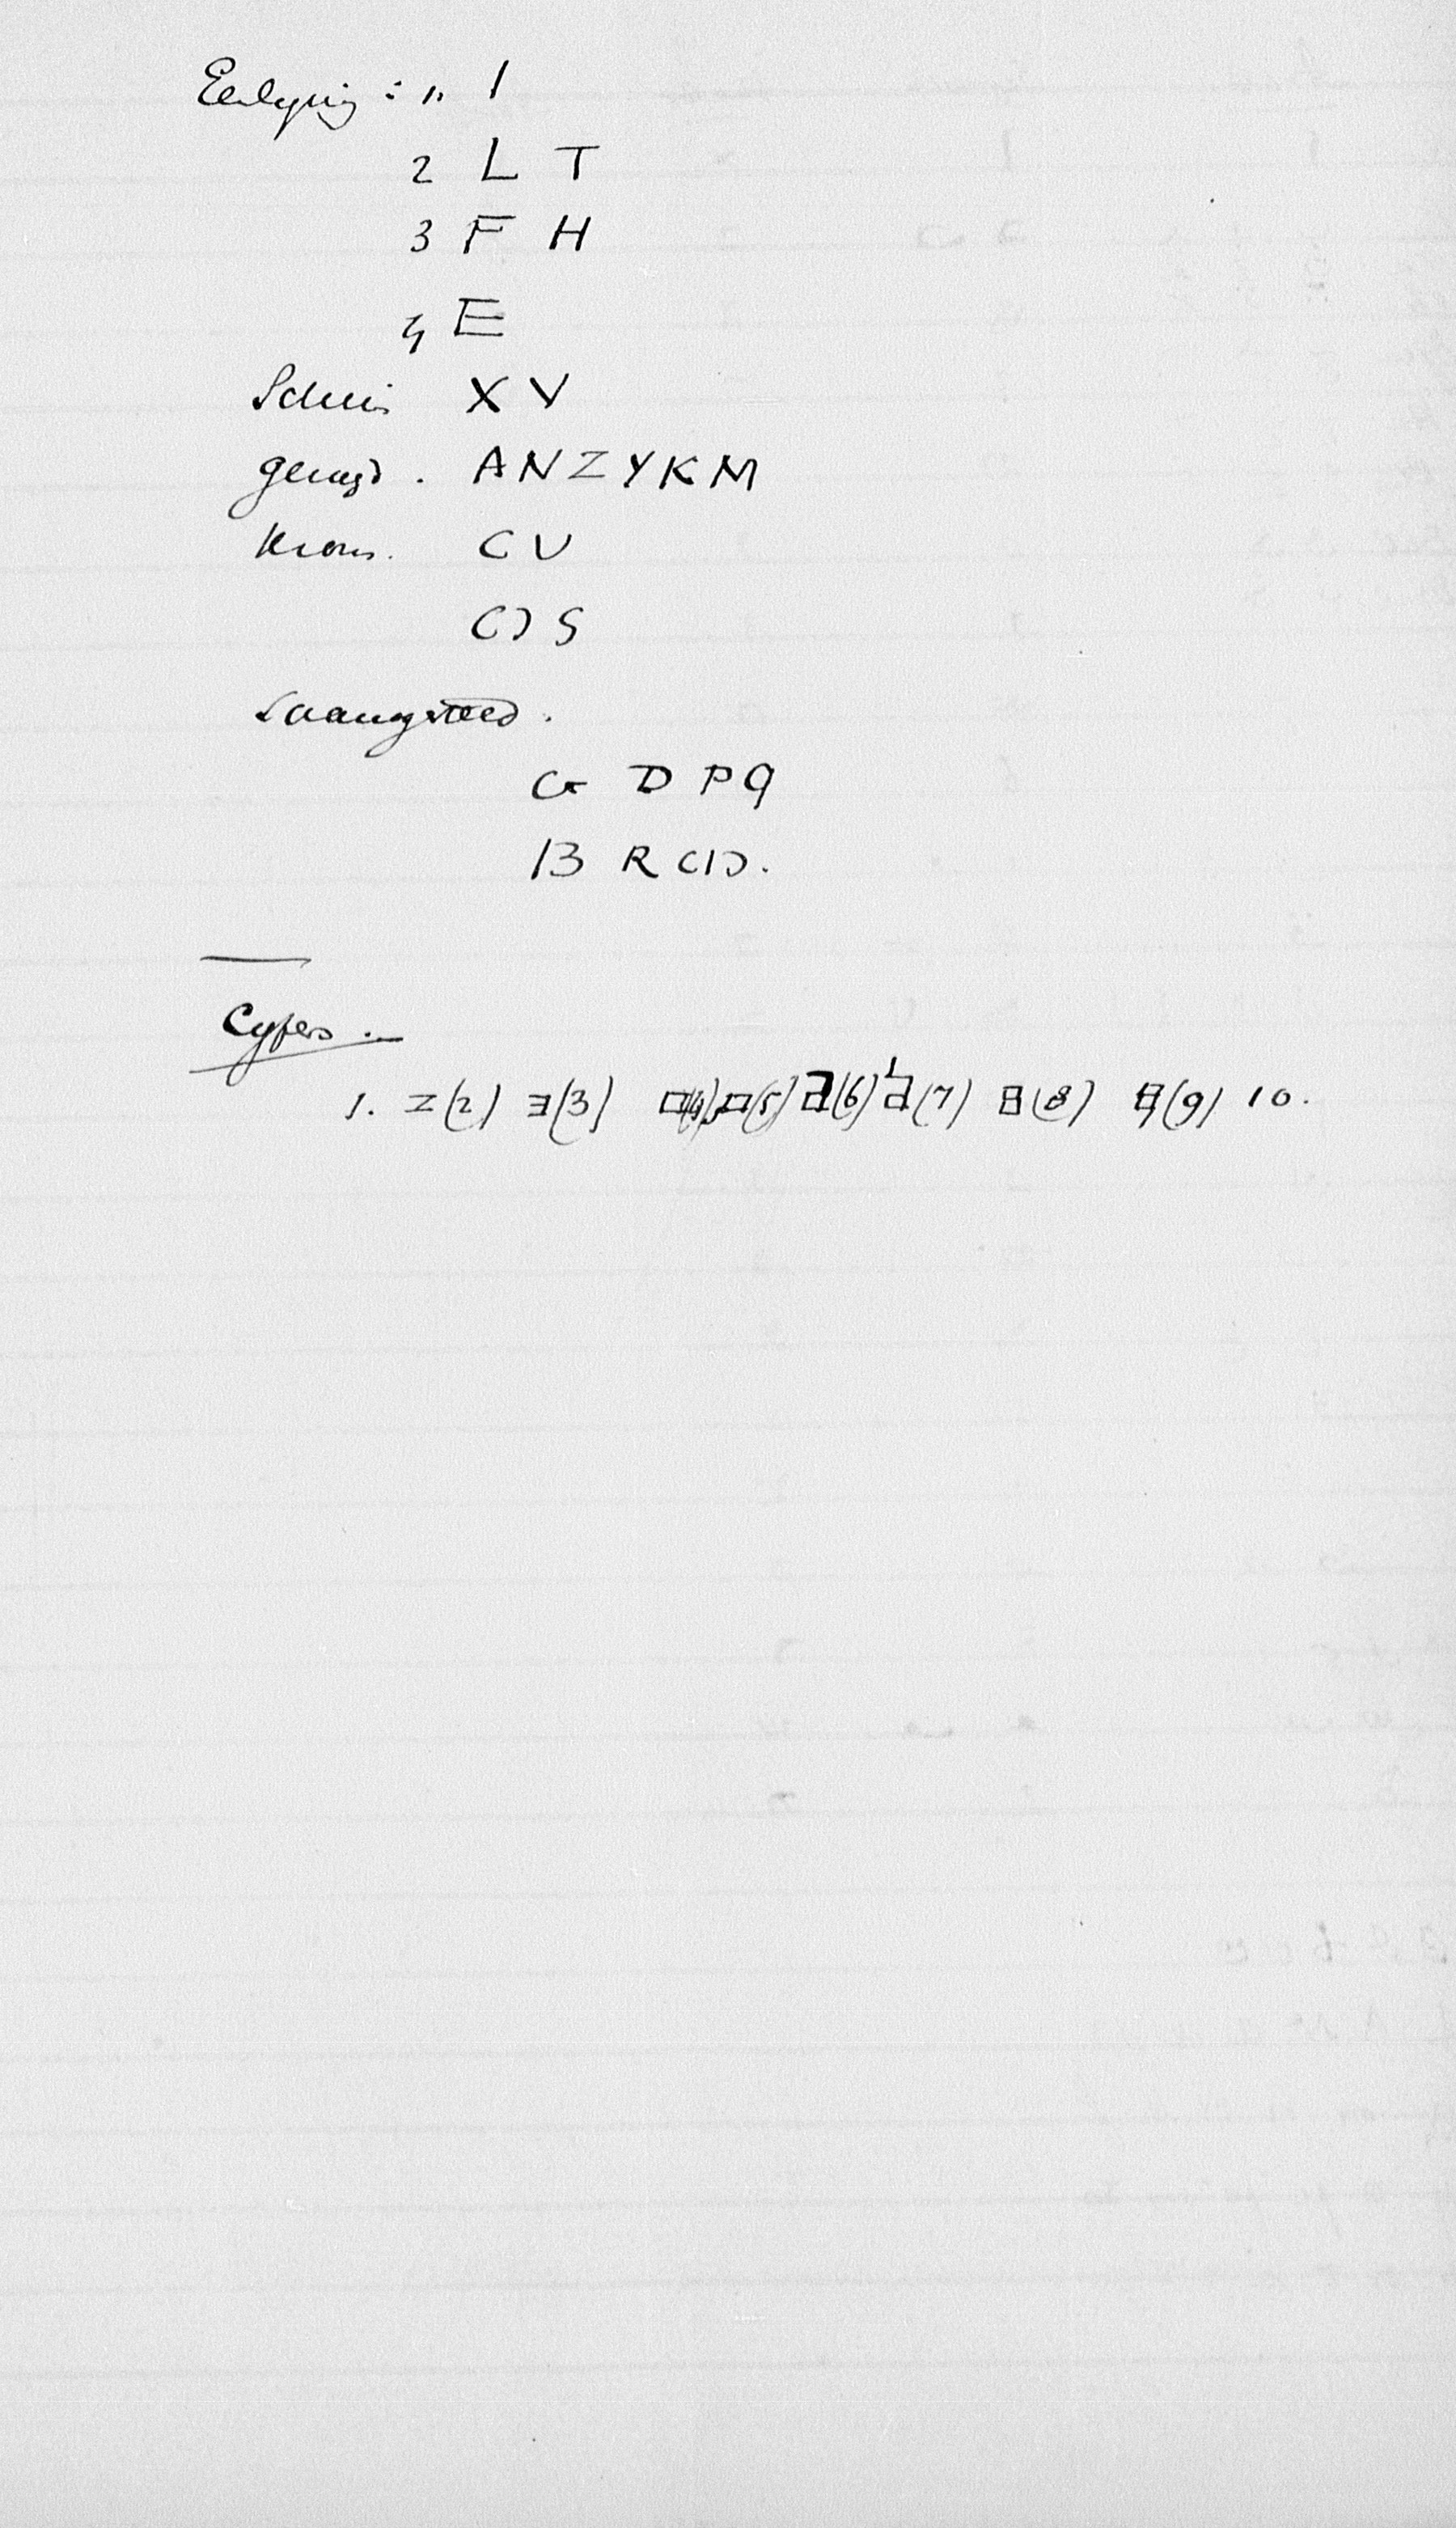 Eenlynig : " I
2 L T
3 F H
4 E
Schuin X V
gemengd . A N Z Y K M
Krom. C U
C) S
Saamgesteld .
G D P Q
B R C I Ɔ .
Cyfers . —
1. Z (2) Ǝ (3) □ (4) □ (5) (6) (7) 日 (8) (9) 10.